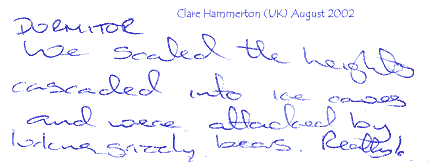 Clare Hammerton (UK) August 2002
DURMITOR
We scaled the heights
cascaded into ice caves
and were attacked by
lurking grizzly bears. Really!